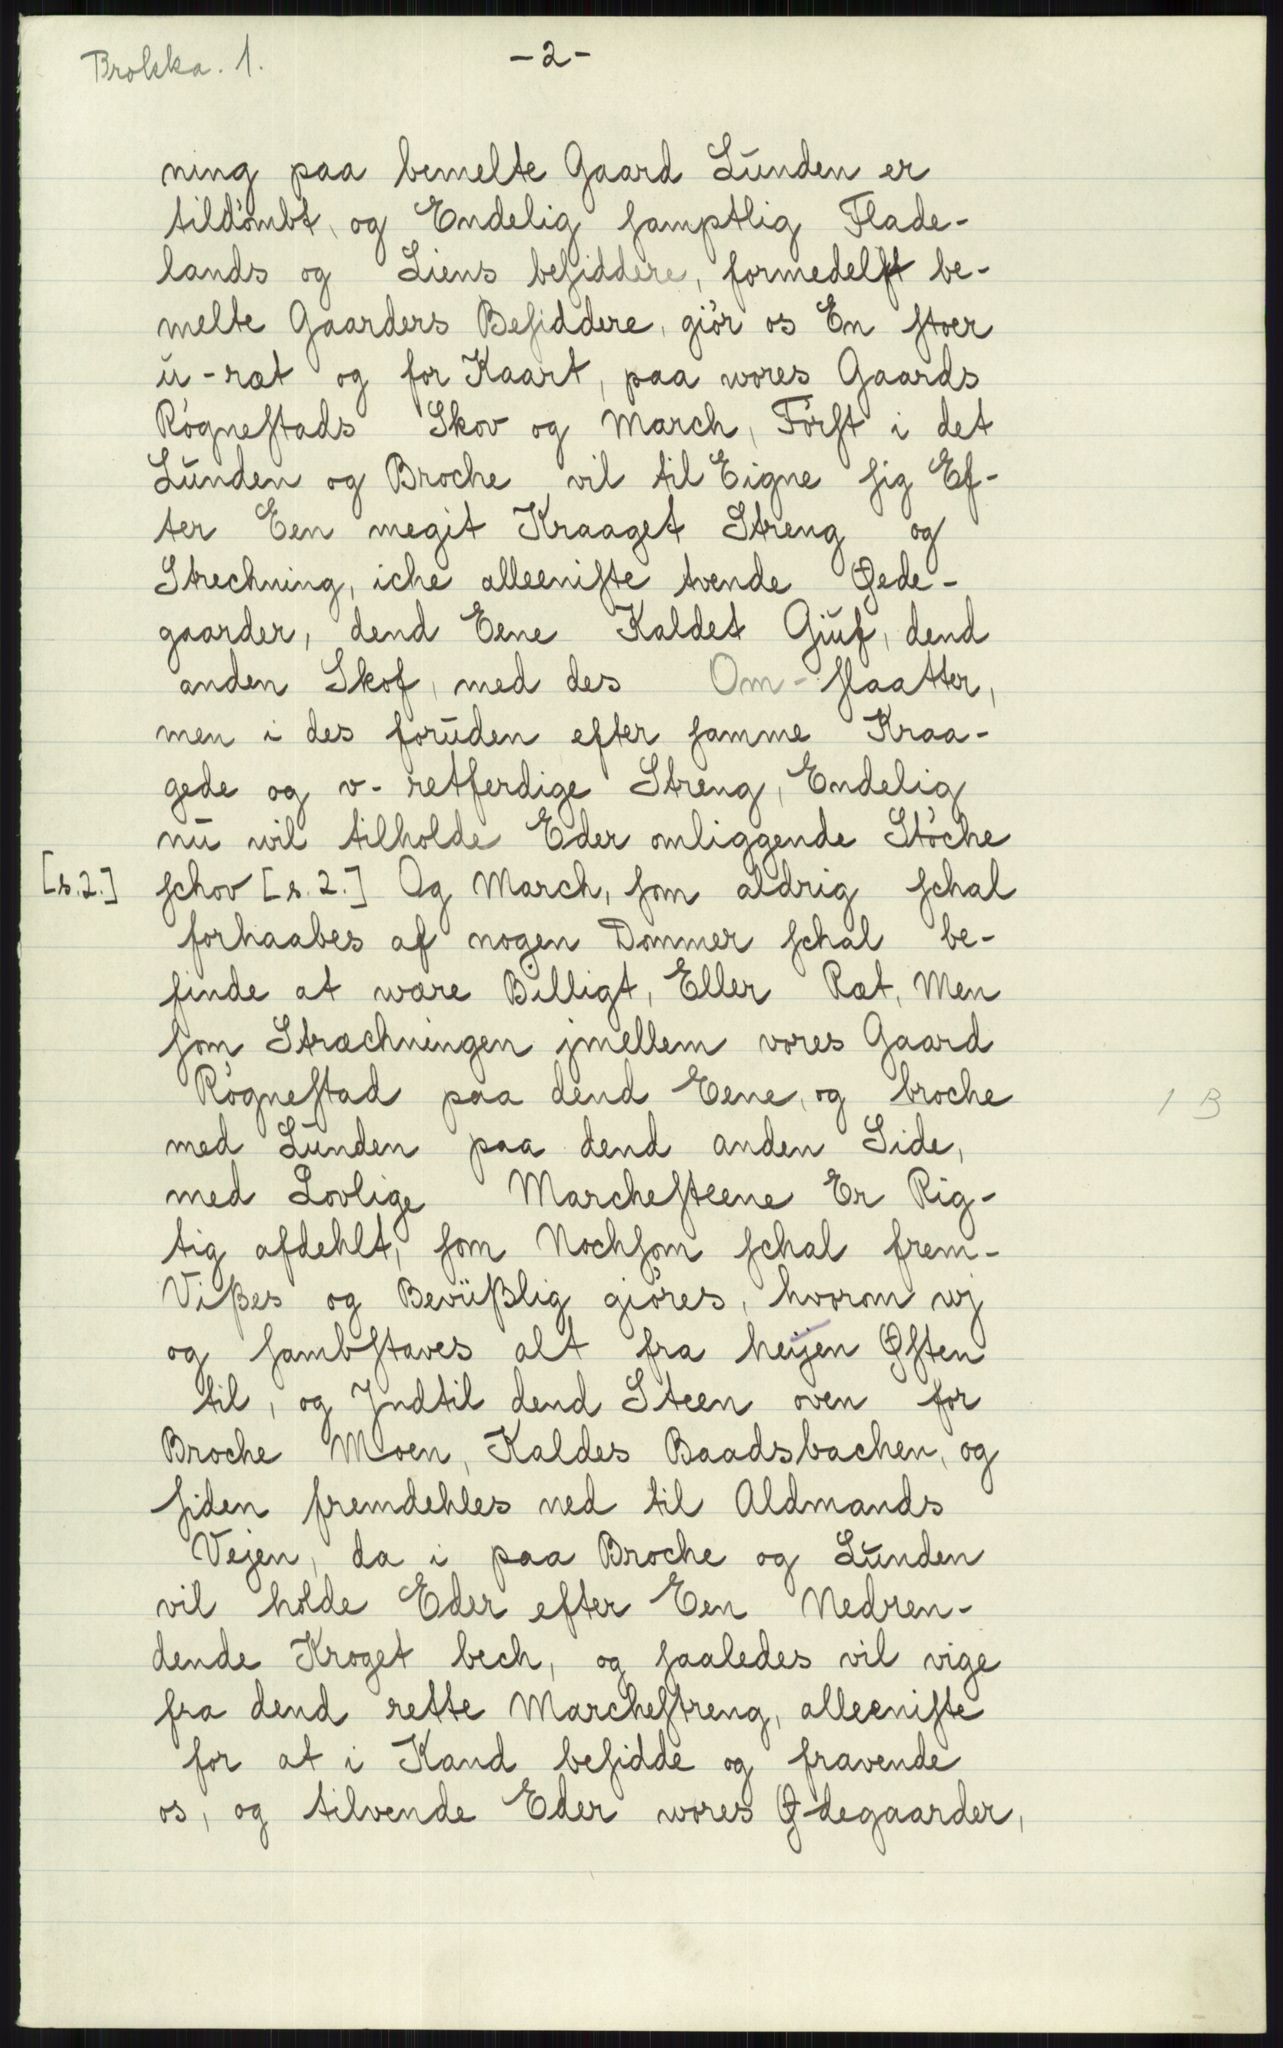 Brokka. 1.
- 2 -
ning paa bemelte Gaard Lŭnden er
tildömbt, og Endelig ſamptlig Flade-
lands og Liens beſiddere, formedelſt be-
melte Gaarders Beſiddere, giör os En ſtoer
ŭ-ræt og for Kaart, paa wores Gaards
Rögneſtads Skov og March, Förſt i det
Lŭnden og Broche vil til Eigne ſig Ef-
ter Een megit Kraaget Streng og
Strechning, iche alleeniſte tvende Øede-
gaarder, dend Eene Kaldet Gjŭf, dend
anden Skof, med des Om-ſlaatter,
men i des forŭden efter ſamme Kraa-
gede og v-retferdige Streng, Endelig
nŭ wil tilholde Eder omliggende Stöche
[s.2.] ſchov [s.2.] Og March, ſom aldrig ſchal
forhaabes af nogen Dommer ſchal be-
finde at wære Billigt, Eller Ræt, Men
ſom Stræchningen jmellem vores Gaard
Rögneſtad paa dend Eene, og broche
1 B
med Lŭnden paa dend anden Side,
med Lovlige Marcheſteene Er Rig-
tig afdehlt, ſom Nochſom ſchal frem-
Viſzes og Bevüſzlig giöres, hvorom wj
og ſambſtaves alt fra heijen Øſten
til, og Jndtil dend Steen oven for
Broche Moen, Kaldes Baadsbachen, og
ſiden fremdehles ned til Aldmands
Vejen, da i paa Broche og Lŭnden
vil holde Eder efter Een Nedren-
dende Kroget bech, og ſaaledes vil vige
fra dend rette Marcheſtreng, alleeniſte
for at i Kand beſidde og fravende
os, og tilvende Eder wores Ødegaarder,